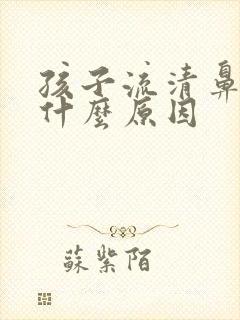 孩子流清鼻
什麼原因
蘇紫陌